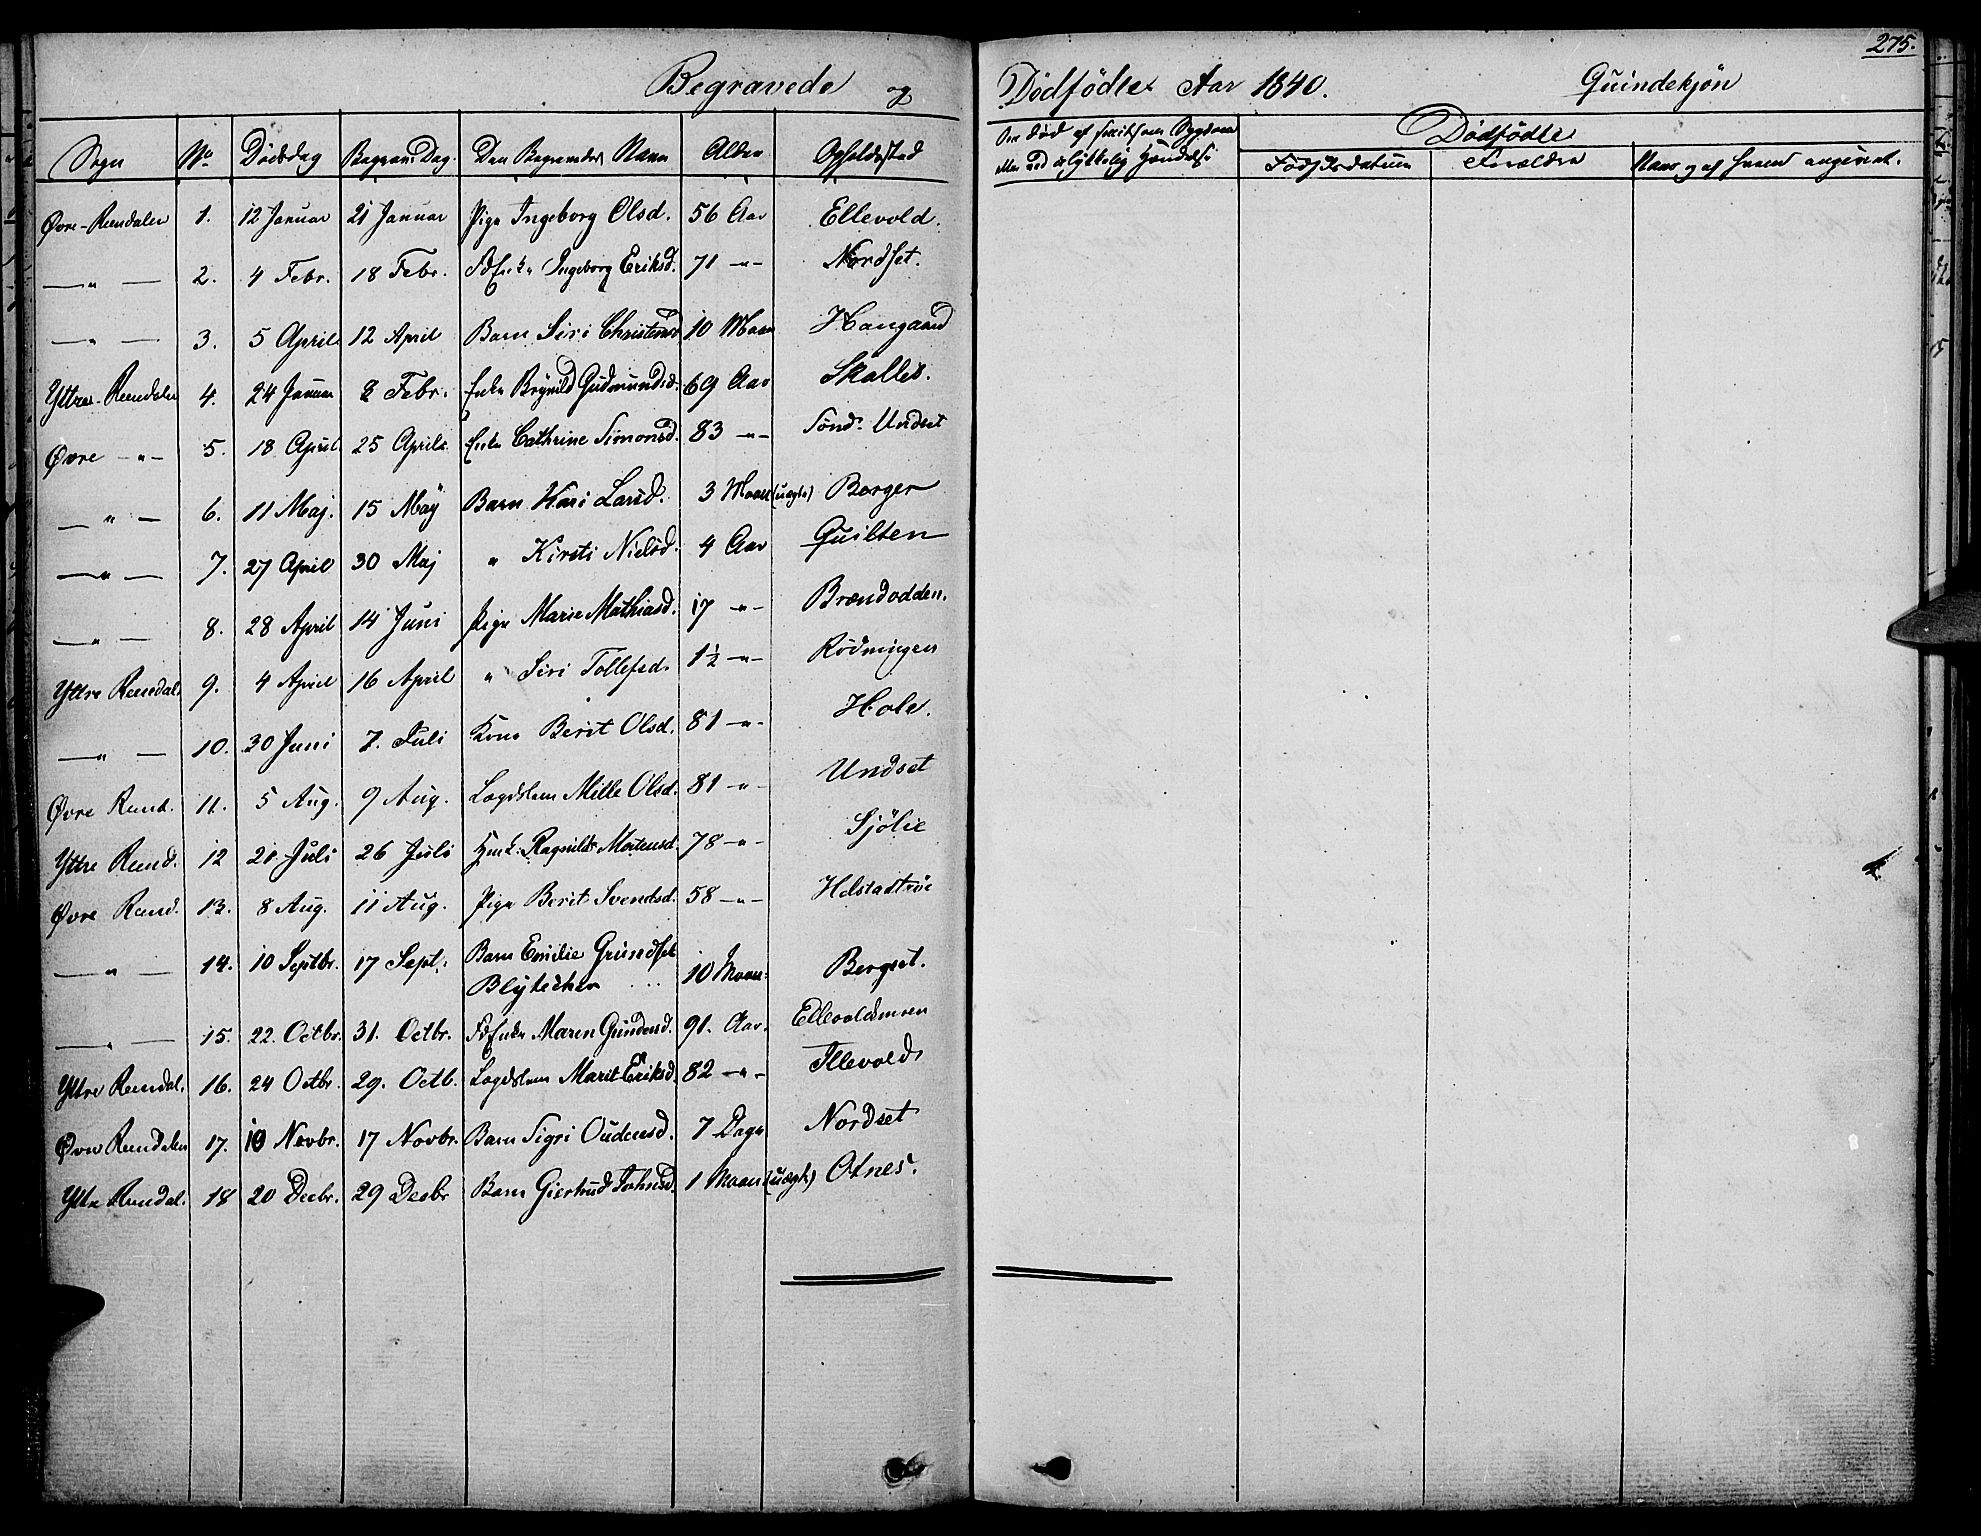 275.
Begravede og Dödfödte Aar 1840. Quindekjön
Sogn No Dödsdag Begrav: Dag. Den Begravedes Navn Alder Opholdssted
Dödfödte
Födselsdatum Forældre
Øvre-Reendalen 1. 12 Januar 21 Januar Pige Ingeborg Olsd. 56 Aar Ellevold.
—"— 2. 4 Febr. 18 Febr. Ingeborg Eriksd. 71 -"- Nordset.
—"— 3. 5 April 12 April Barn Siri Christensd 10 Maan Haugaard
Yttre-Reendalen 4. 24 Januar 2 Febr. Enke Brynild Gudmundsd. 69 Aar Skallet.
Øvre -"- 5. 18 April 25 April Enke Cathrine Simonsd. 83 -"- Sönd: Undset
—"— 6. 11 Maj. 15 Maÿ Barn Kari Larsd. 3 Maan (uægte) Berger
—"— 7. 27 April 30 Maj " Kirsti Nielsd. 4 Aar Quilten
—"— 8. 28 April 14 Juni Pige Marie Mathiasd. 17 -"- Brændodden.
Yttre Reendal. 9. 4 April 16 April " Siri Tollefsd. 1½ -"- Rödningen
—"— 10. 30 Juni 7. Juli Kone Berit Olsd. 81 -"- Hole.
Øvre Reend. 11. 5 Aug. 9 Aug. Lægdslem Mille Olsd. 81 -"- Undset
Yttre Reend. 12 21 Juli 26 Juli Ragnild Mortensd. 78 -"- Sjölie
Øvre Reend. 13. 8 Aug. 11 Aug. Pige Berit Svendsd. 58 -"- Helstadtrøe
—"— 14. 10 Septbr. 17 Sept: Barn Emilie Grundset
Blÿtecker 10 Maan: Bergset.
—"— 15. 22. Octbr. 31. Octbr. Maren Gundersd. 91. Aar. Ellevoldsmoen
Yttre Reendal. 16. 24 Octbr. 29. Octb. Lægdslem Marit Eriksd. 82 -"- Illevold
Øvre Reendalen 17. 10 Novbr. 17 Novbr. Barn Sigri Oudensd. 7 Dage Nordset
Yttre Reendal. 18 20 Decbr. 29 Decbr Barn Giertrud Johnsd. 1 Maan (uægte) Otnes.